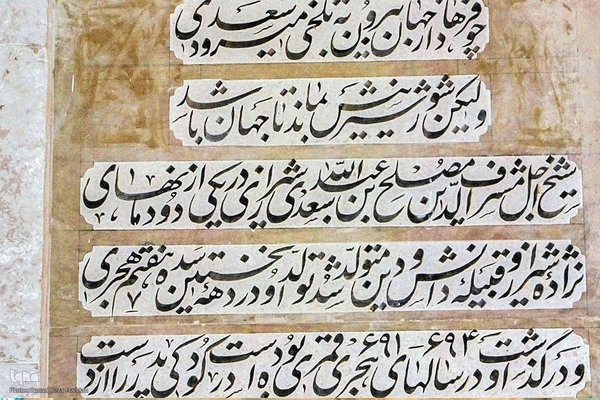 چو فرهاد از جهان بیرون به تلخی میرود سعدی
ولیکن شور شیرینش بماند تا جهان باشد
شیخ اجل مشرف الدین مصلح بن عبدالله سعدی شیرازی در یکی از دودمانهای
نژاده شیراز و قبیله دانش و دین متولد شد تولد او در دههٔ نخستین سده هفتم هجری
و درگذشت او در سالهای ۶۹۴ ۶۹۱ هجری قمری بوده است در کودکی پدر را از دست